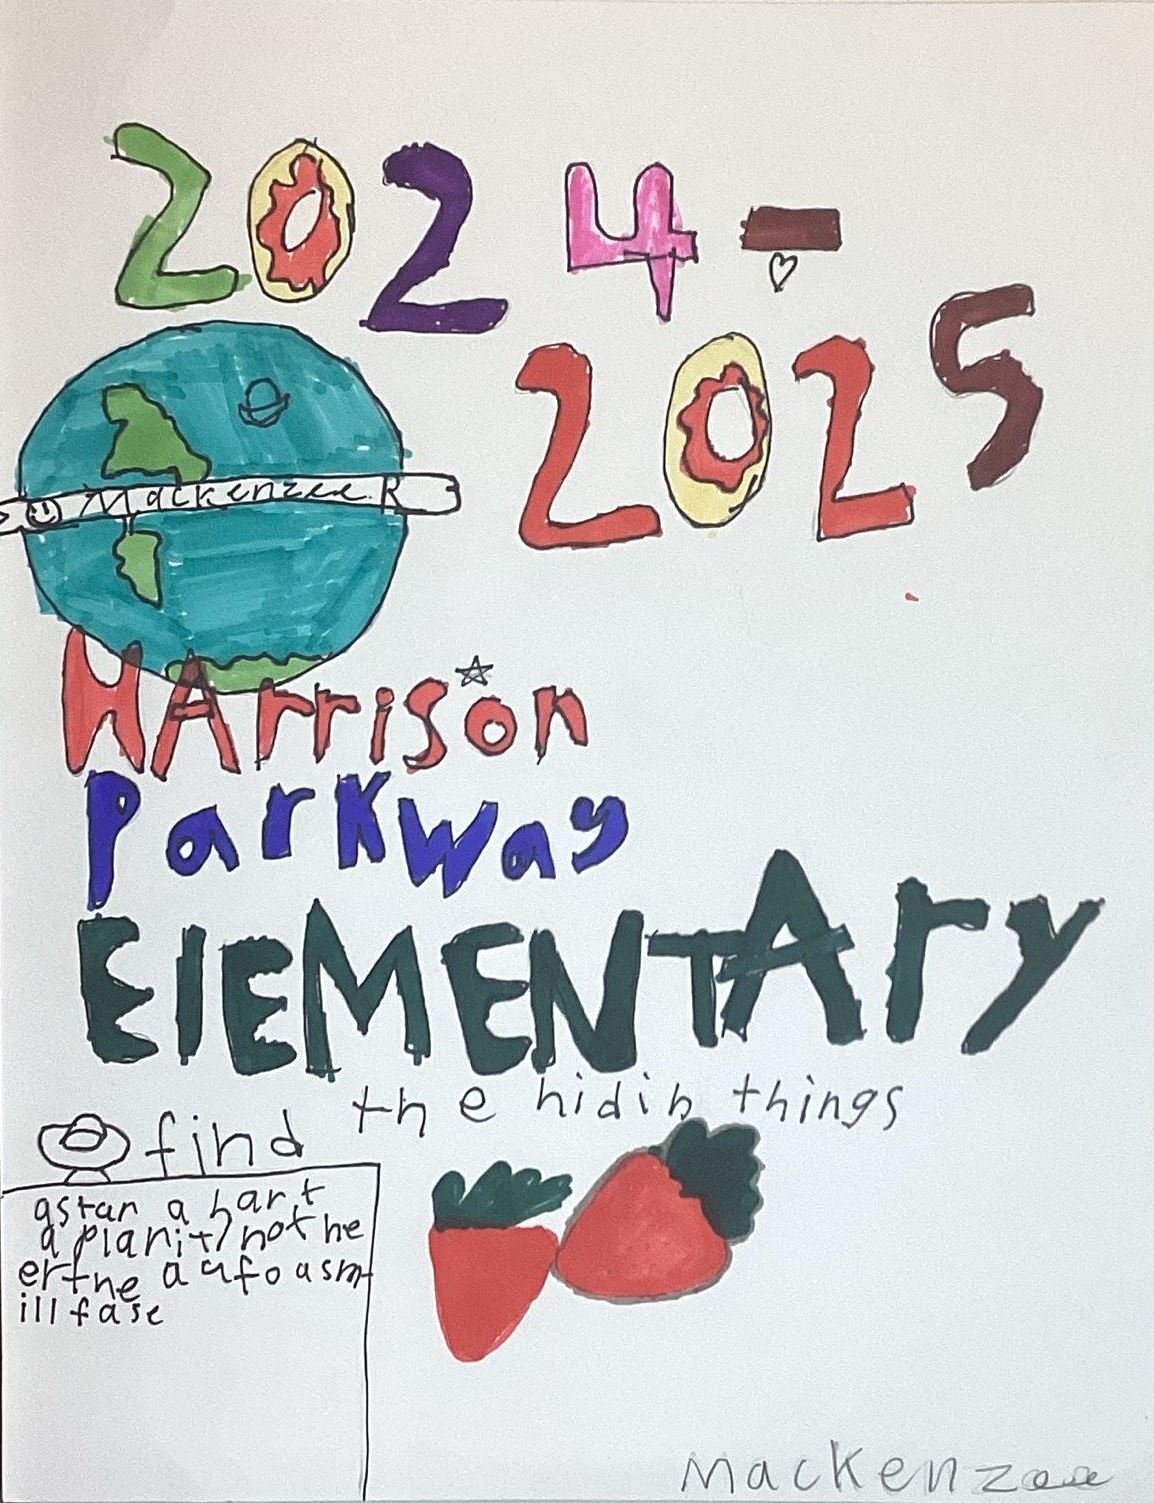 2024-
2025
Mackenzee.R
HArrison
ParkWay
ElEMENTAry
find the hidin things
a star a hart
a planit/not he
erthe a ufo a sm
ill fase
Mackenzee